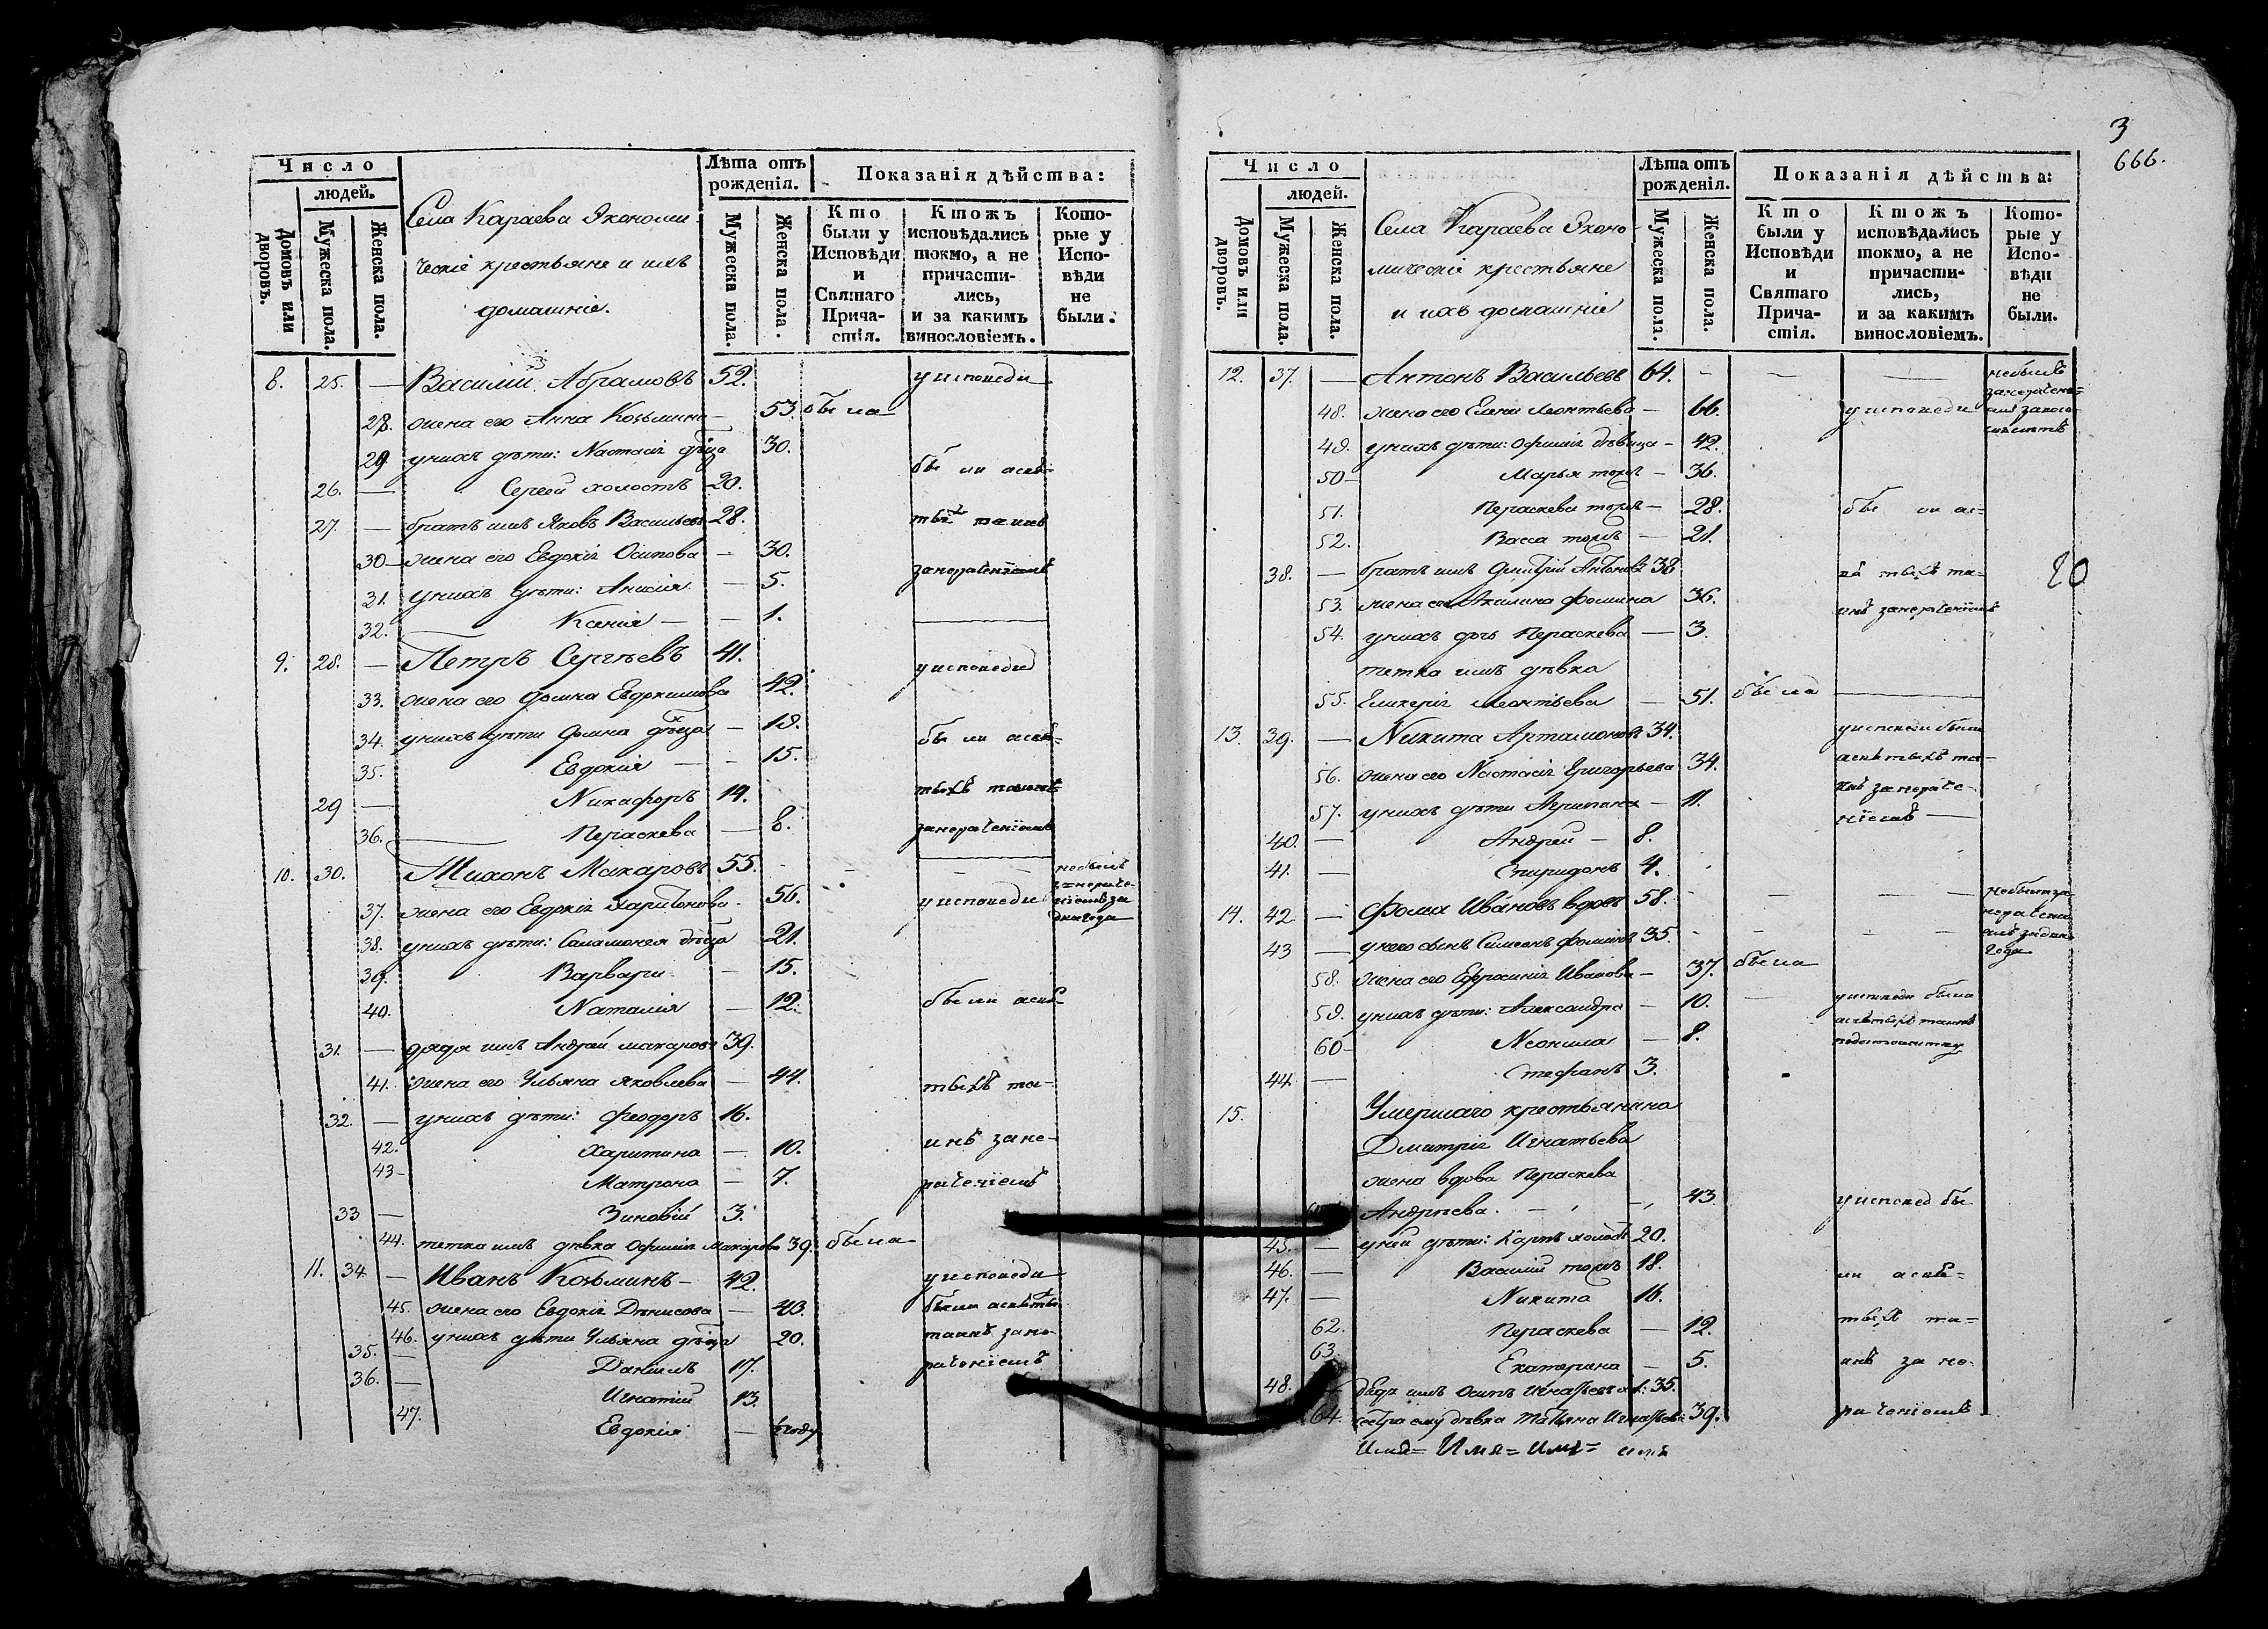 Число
людей.
Домовъ или дворовъ.
Мужеска пола.
Женска пола.
Села Караева Экономи-
ческіе крестьяне и ихъ
домашніе.
Лѣта отъ
рожденія.
Мужеска пола.
Женска пола.
Показанія дѣйства:
Кто
были у
Исповѣди
и
Святаго
Прича-
стія.
Ктожъ
исповѣдались
токмо, а не
причасти-
лись,
и за какимъ
винословіемъ.
Кото-
рые у
Испо-
вѣди
не
были.
8. 25. — Василій Абрамовъ 52. у исповеди
28. жена его Анна Козьмина — 53. была
29. у нихъ дѣти: Настасія дѣвца 30.
26. — Сергей холостъ 20. бы ли а св-
27. — братъ имъ Яковъ Васильевъ 28.
30 — жена его Евдокія Осипова — 30.
31. у нихъ дѣти: Анисія — 5. занераченіемъ
32. Ксенія — — 1.
9. 28. — Петръ Сергѣевъ 41. у исповеди
33. жена его Домна Евдокимова 42.
34. у нихъ дѣти Домна дѣвца — 19.
35. Евдокія — — 15.
29 — Никифоръ 14.
36. Пераскева — 8. занераченіемъ
10. 30. Тихонъ Макаровъ 55.
37. жена его Евдокія Харитонова. 56. у исповеди
38. у нихъ дѣти: Саламонея дѣвца 21.
39. Варвара — 15.
40. Наталія — 12. были а св-
31. — дядя имъ Андрей Макаровъ 39.
41. жена его Ульяна Яковлева — 44. тыхъ та-
32. — у нихъ дѣти: Феодоръ 16.
42. Харитина — 10. инъ зане-
43 — Матрона — 7. раченіемъ
33 — Зиновій 3.
44. тетка имъ дѣвка Офимія Макарова 39. была
11. 34 — Иванъ Козьминъ — 42. у исповеди
45. жена его Евдокія Денисова — 43.
46. у нихъ дѣти Ульяна дѣвца 20. таинъ зане-
35. — Даніилъ 17. раченіемъ
36. — Игнатій 13.
47. Евдокія — году
3
666.
Число
людей.
Домовъ или дворовъ.
Мужеска пола.
Женска пола.
Села Караева Эконо-
мическіе крестьяне
и ихъ домашніе
Лѣта отъ
рожденія.
Мужеска пола.
Женска пола.
Показанія дѣйства:
Кто
были у
Исповѣди
и
Святаго
Прича-
стія.
Ктожъ
исповѣдались
токмо, а не
причасти-
лись,
и за какимъ
винословіемъ.
Кото-
рые у
Испо-
вѣди
не
были.
12. 37. — Антонъ Васильевъ 64. — — —
48. жена его Елена Леонтьева — 66. у исповеди
49. у нихъ дѣти: Офимія дѣвица — 42.
50 — Марья тожъ — 36.
51. Пераскева тожъ — 28. бы ли а с-
52. Васса тожъ — 21.
38. — братъ имъ Дмитрій Антоновъ 38
20
53. жена его Акилина Фомина 36. инъ занераченіемъ
54. у нихъ дочь Пераскева — 3.
тетка имъ дѣвка
55. Гликерія Леонтьева — 51. была
13. 39. — Никита Артамоновъ 34. у исповеди были
56. жена его Настасія Григорьева 34.
57. у нихъ дѣти Агрипина — 11. инъ занераче-
40. — Андрей — 8. ніемъ —
41. — Спиридонъ 4.
14. 42 — Фома Ивановъ вдовъ 58. — — —
43 — у него сынъ Симеонъ Фоминъ 35. года
58. жена его Ефросинія Иванова — 37. была
59. у нихъ дѣти: Александра — 10. у исповеди была
60 — Неонила — 8.
44 — Стефанъ 3.
15. Умершаго крестьянина
Дмитрія Игнатьева
жена вдова Пераскева
Андрѣева. — — 43 у исповед бы-
45. — у ней дѣти: Карпъ холостъ 20.
46. — Василій тожъ 18. ли а свя-
47. — Никита 16.
62. Пераскева — 12. тыхъ та-
63. Екатерина — 5. инъ за не-
48. дядя имъ Осипъ Игнатьевъ хол: 35.
64. сестра ему дѣвка Татьяна Игнатьева 39. раченіемъ
Имя= Имя= Имя= имя